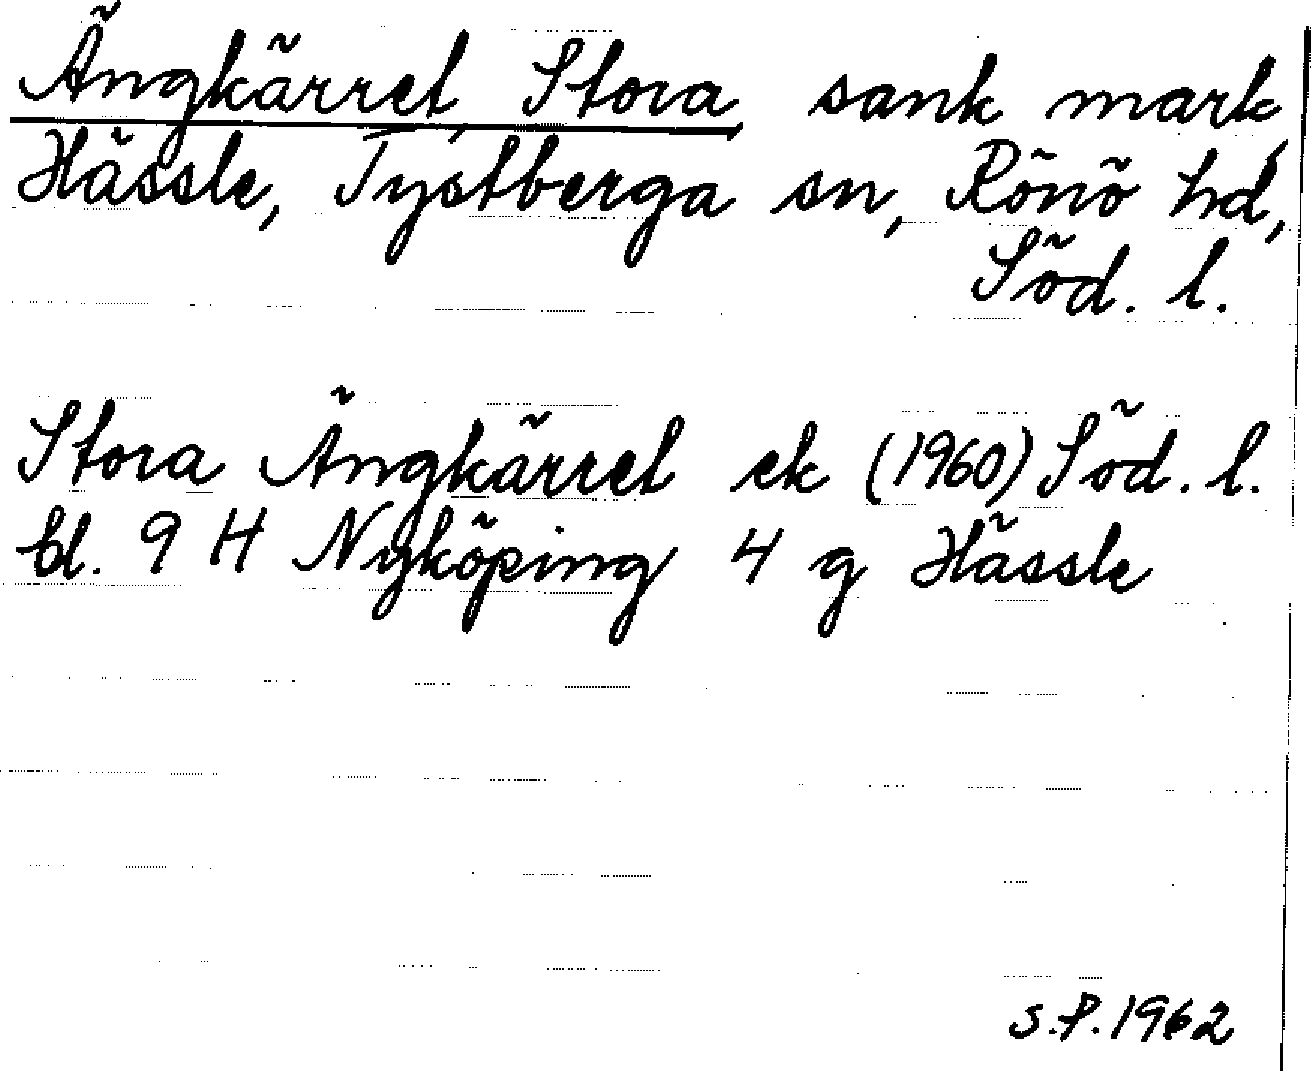 Ängkärret, Stora, sank mark,
Hässle, Tystberga sn, Rönö hd,
Söd. l.
Stora Ängkärret ek (1960) Söd. l.
bl. 9 H Nyköping 4 g Hässle
S.P. 1962